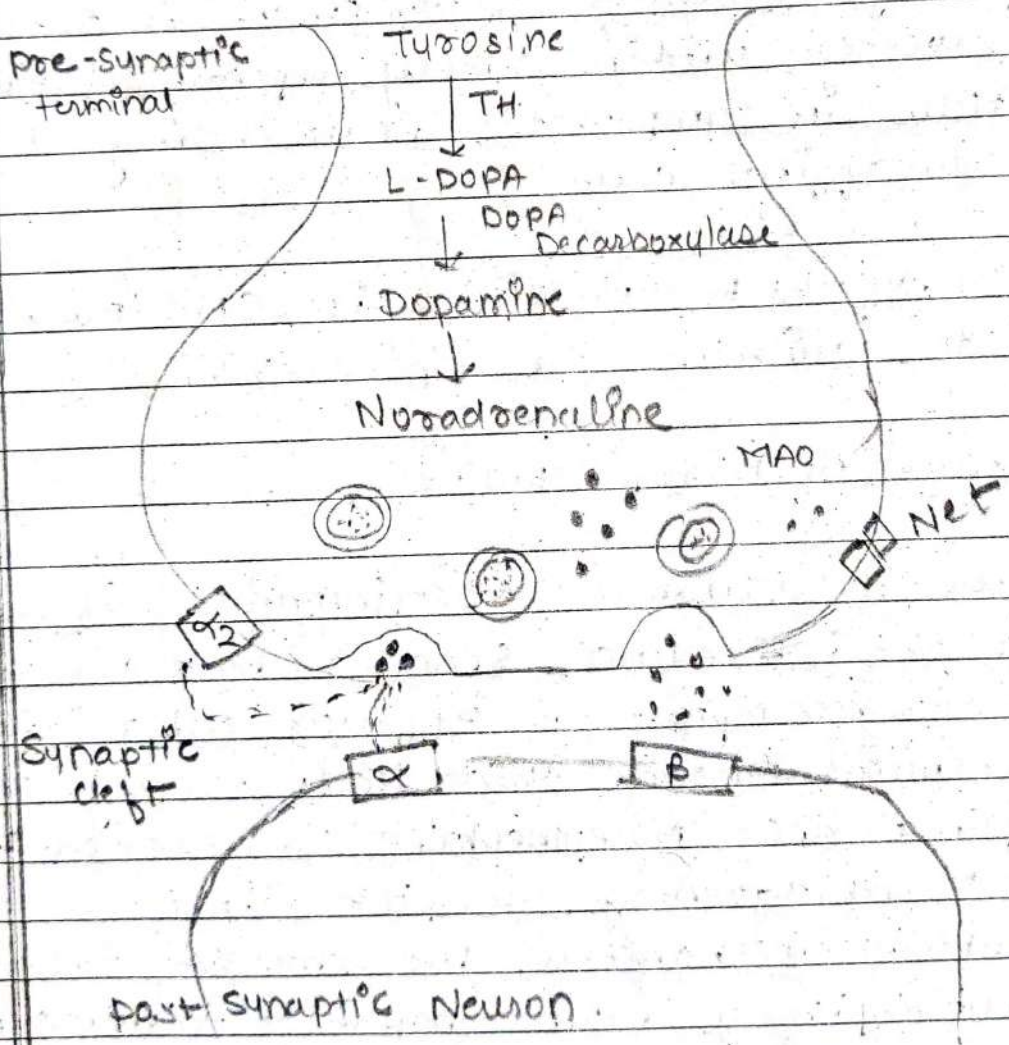 Pre-Synaptic
terminal
Tyrosine
TH
L-DOPA
DOPA
Decarboxylase
Dopamine
Noradrenaline
MAO
Net
α2
Synaptic
cleft
α
β
Post Synaptic Neuron